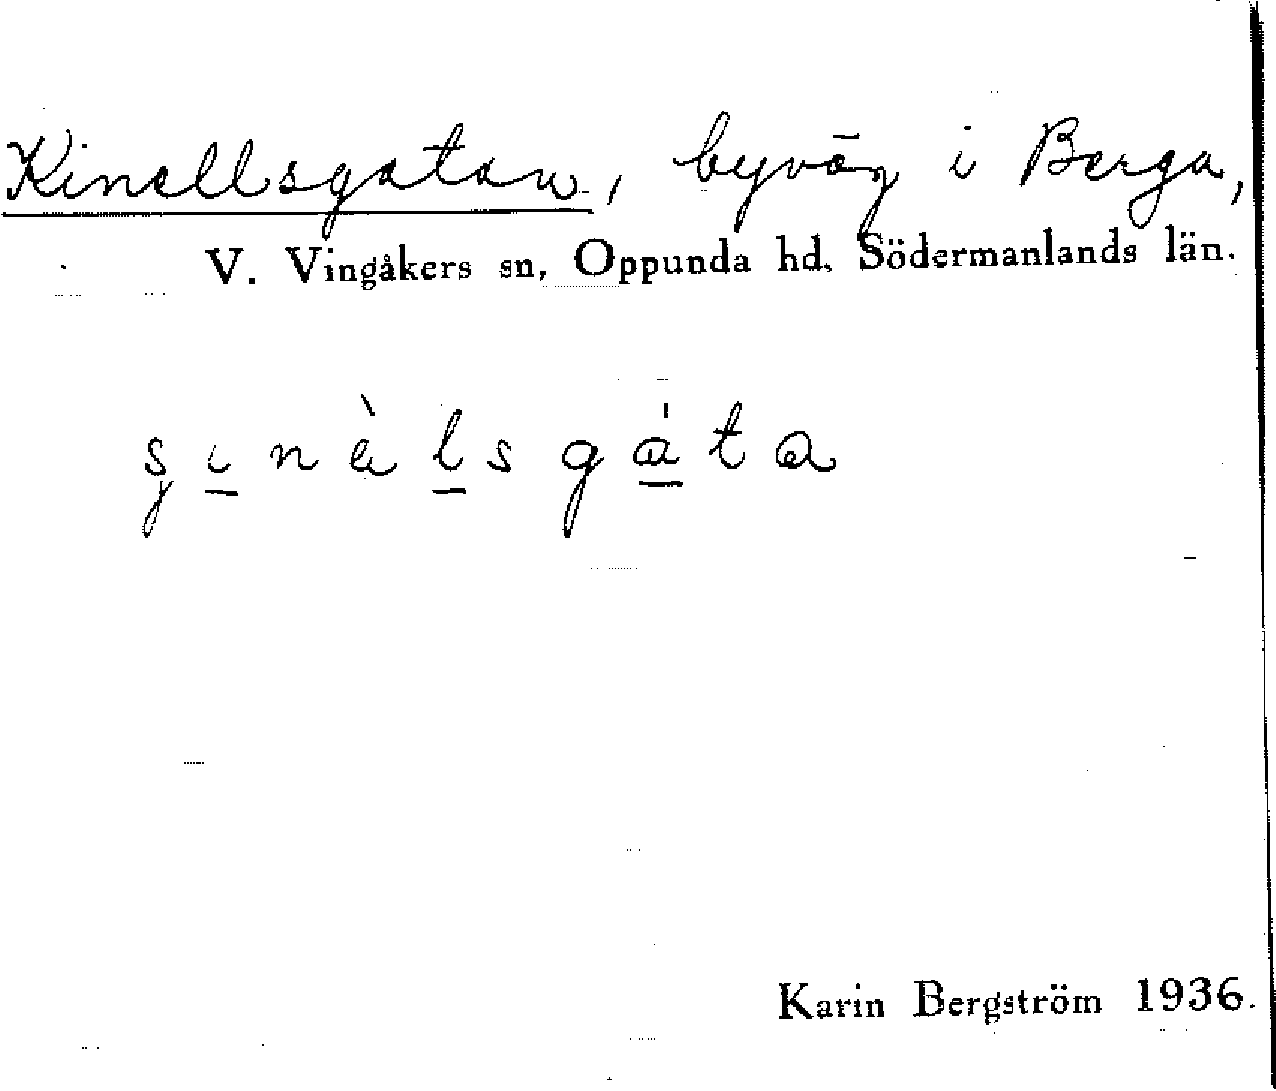 Kinellsgatan, byväg i Berga,
V. Vingåkers sn, Oppunda hd, Södermanlands län.
Karin Bergström 1936.